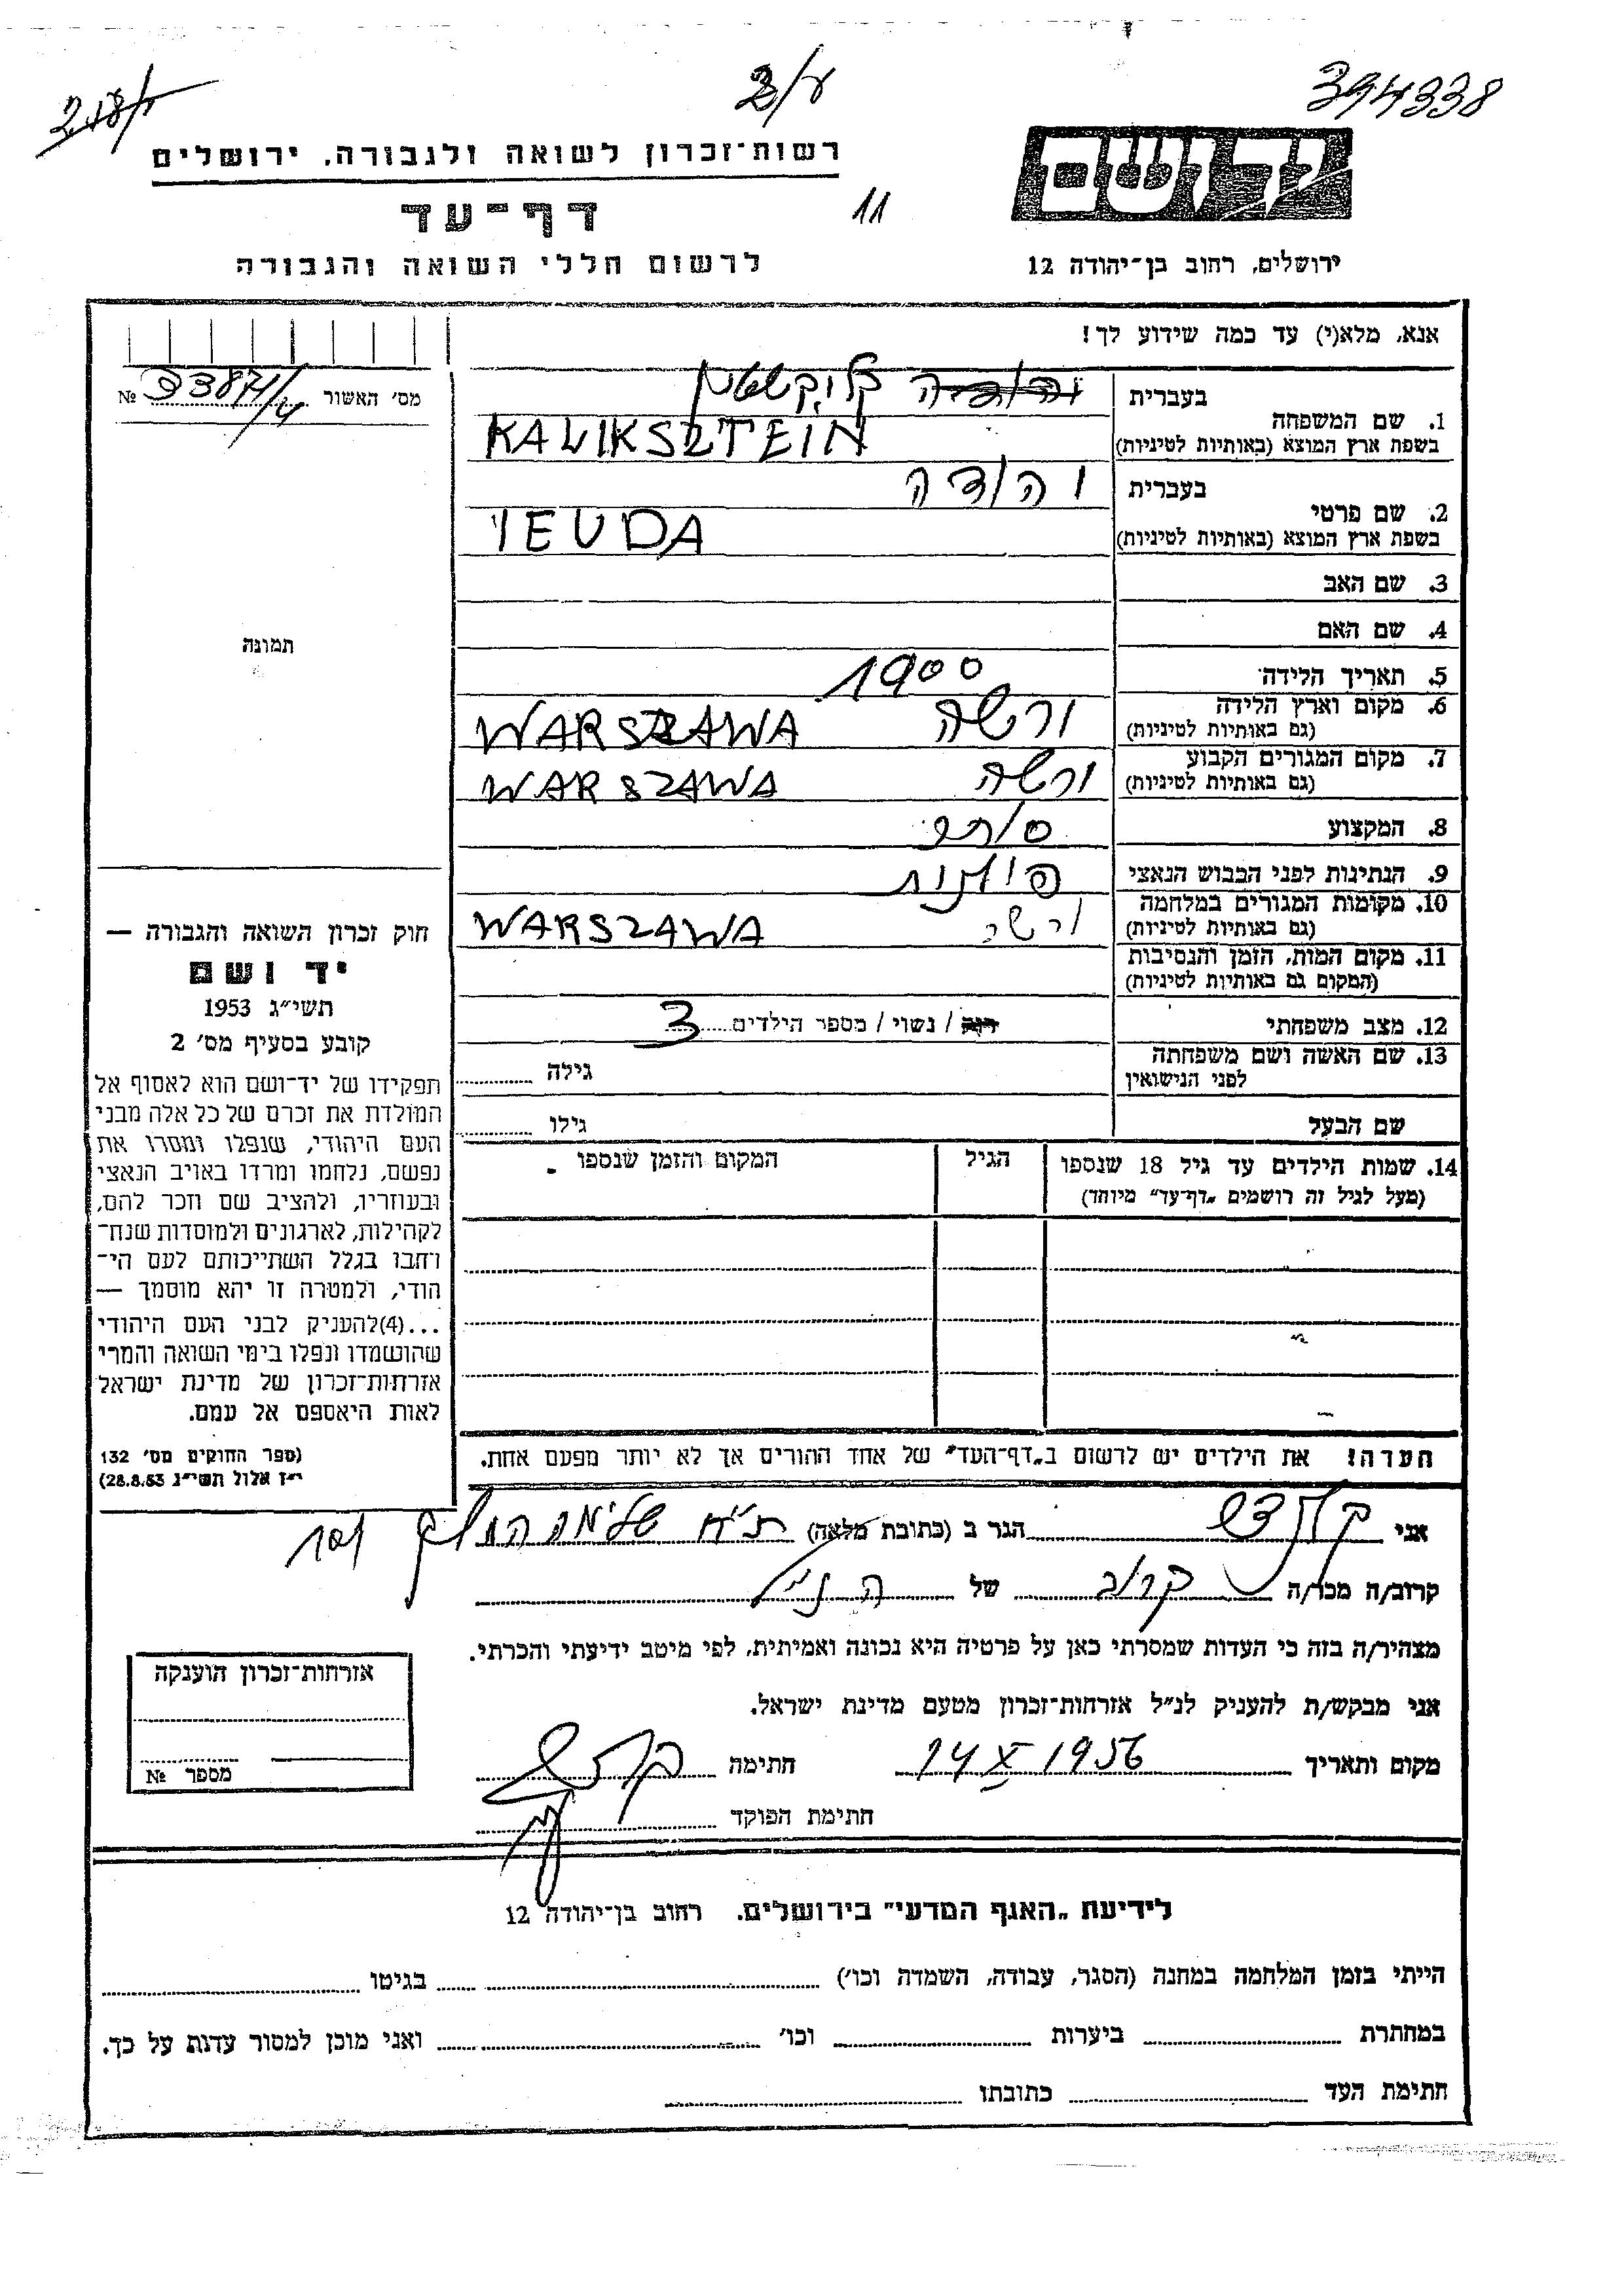 394338
רשות־זכרון לשואה ולגבורה. ירושלים
יד ושם
דף־עד
11
ירושלים, רחוב בן־יהודה 12
לרשום חללי השואה והגבורה
אנא, מלא(י) עד כמה שידוע לך!
מס׳ האשור №
1. שם המשפחה
בעברית יהודה קליקשטיין
בשפת ארץ המוצא (באותיות לטיניות) KALIKSZTEIN
2. שם פרטי
בעברית יהודה
בשפת ארץ המוצא (באותיות לטיניות) IEUDA
3. שם האב
4. שם האם
תמונה
5. תאריך הלידה 1900
6. מקום וארץ הלידה
(גם באותיות לטיניות) ורשה WARSZAWA
7. מקום המגורים הקבוע
(גם באותיות לטיניות) ורשה WARSZAWA
8. המקצוע סוחר
9. הנתינות לפני הכבוש הנאצי פולנית
10. מקומות המגורים במלחמה
(גם באותיות לטיניות) ורשה WARSZAWA
11. מקום המות, הזמן והנסיבות
(המקום גם באותיות לטיניות)
12. מצב משפחתי רוק / נשוי / מספר הילדים 3
13. שם האשה ושם משפחתה
לפני הנישואין גילה
שם הבעל גילו
14. שמות הילדים עד גיל 18 שנספו הגיל המקום והזמן שנספו
(מעל לגיל זה רושמים „דף־עד״ מיוחד)
הערה! את הילדים יש לרשום ב„דף־העד״ של אחד ההורים אך לא יותר מפעם אחת.
חוק זכרון השואה והגבורה —
יד ושם
תשי״ג 1953
קובע בסעיף מס׳ 2
תפקידו של יד־ושם הוא לאסוף אל
המולדת את זכרם של כל אלה מבני
העם היהודי, שנפלו ומסרו את
נפשם, נלחמו ומרדו באויב הנאצי
ובעוזריו, ולהציב שם וזכר להם,
לקהילות, לארגונים ולמוסדות שנח־
רחבו בגלל השתייכותם לעם הי־
הודי, ולמטרה זו יהא מוסמך —
...(4)להעניק לבני העם היהודי
שהושמדו ונפלו בימי השואה והמרי
אזרחות־זכרון של מדינת ישראל
לאות היאספם אל עמם.
(ספר החוקים מס׳ 132
י״ז אלול תשי״ג 28.8.53)
אני הגר ב (כתובת מלאה) ת״א שלמה המלך 101
קרוב/ה מכר/ה קרוב של הנ״ל
מצהיר/ה בזה כי העדות שמסרתי כאן על פרטיה היא נכונה ואמיתית, לפי מיטב ידיעתי והכרתי.
אני מבקש/ת להעניק לנ״ל אזרחות־זכרון מטעם מדינת ישראל.
מקום ותאריך 14 X 1956 חתימה
חתימת הפוקד
אזרחות־זכרון הוענקה
מספר №
לידיעת „האגף המדעי״ בירושלים. רחוב בן־יהודה 12
הייתי בזמן המלחמה במחנה (הסגר, עבודה, השמדה וכו׳) בגיטו
במחתרת ביערות וכו׳ ואני מוכן למסור עדות על כך.
חתימת העד כתובתו